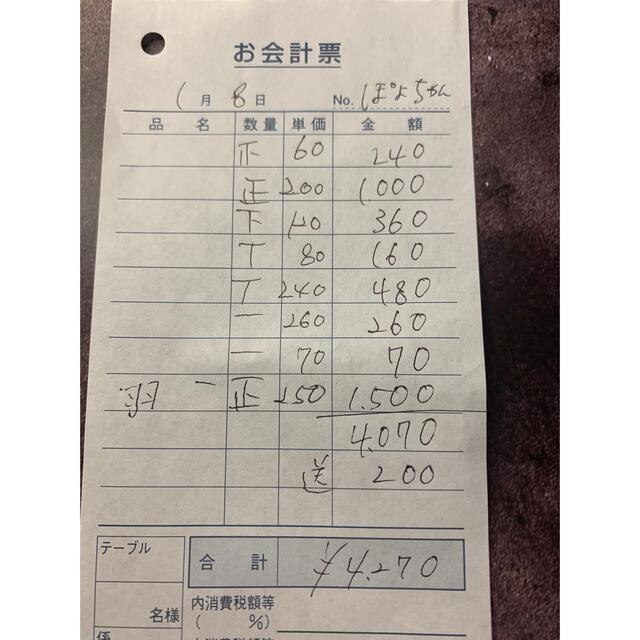 お会計票
1月8日 No. ぽよちゃん
品名 数量 単価 金額
60 240
正 200 1.000
下 120 360
T 80 160
T 240 480
一 260 260
一 70 70
正 150 1.500
4.070
送 200
テーブル
合計 ¥4.270
名様
内消費税額等
( %)
係